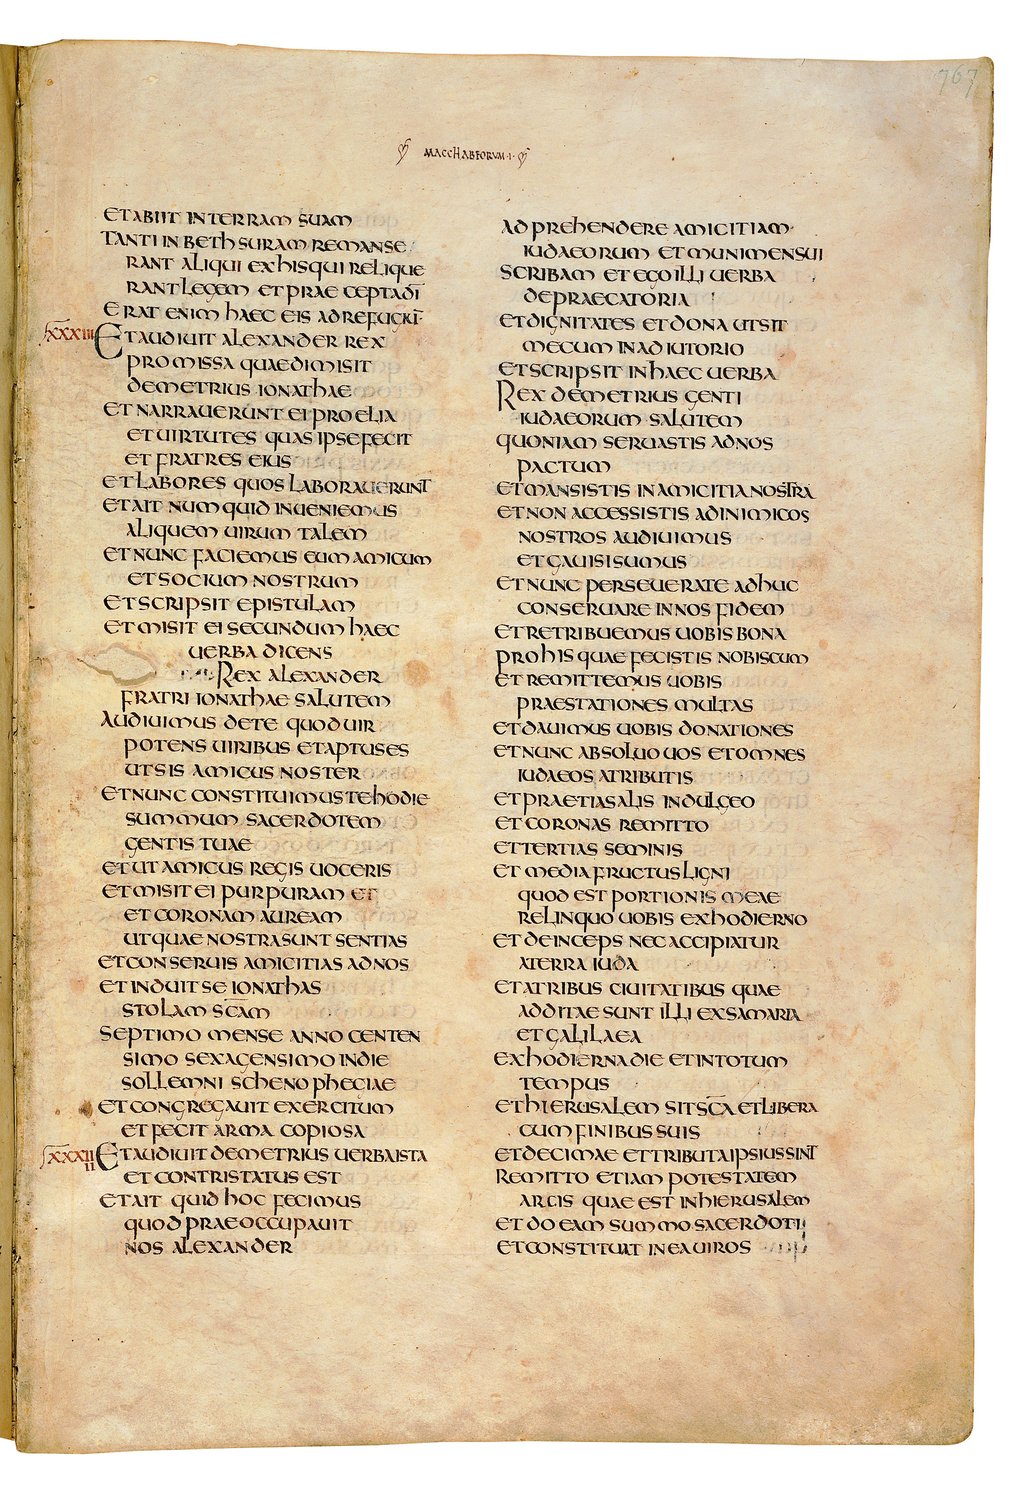 767
MACCHABEORUM·I·
ET ABIIT IN TERRAM SUAM
TANTI IN BETHSURAM REMANSE
RANT ALIQUI EX HIS QUI RELIQUE
RANT LEGEM ET PRAECEPTA DĪ
ERAT ENIM HAEC EIS AD REFUGIU̅
LXXXIII
ET AUDIUIT ALEXANDER REX
PROMISSA QUAE DIMISIT
DEMETRIUS IONATHAE
ET NARRAUERUNT EI PROELIA
ET UIRTUTES QUAS IPSE FECIT
ET FRATRES EIUS
ET LABORES QUOS LABORAUERUNT
ET AIT NUMQUID INUENIEMUS
ALIQUEM UIRUM TALEM
ET NUNC FACIEMUS EUM AMICUM
ET SOCIUM NOSTRUM
ET SCRIPSIT EPISTULAM
ET MISIT EI SECUNDUM HAEC
UERBA DICENS
REX ALEXANDER
FRATRI IONATHAE SALUTEM
AUDIUIMUS DE TE QUOD UIR
POTENS UIRIBUS ET APTUS ES
UT SIS AMICUS NOSTER
ET NUNC CONSTITUIMUS TE HODIE
SUMMUM SACERDOTEM
GENTIS TUAE
ET UT AMICUS REGIS UOCERIS
ET MISIT EI PURPURAM ET
ET CORONAM AUREAM
UT QUAE NOSTRA SUNT SENTIAS
ET CONSERUIS AMICITIAS AD NOS
ET INDUIT SE IONATHAS
STOLAM SC̅AM
SEPTIMO MENSE ANNO CENTEN
SIMO SEXAGENSIMO IN DIE
SOLLEMNI SCHENOPHEGIAE
ET CONGREGAUIT EXERCITUM
ET FECIT ARMA COPIOSA
LXXXIIII
ET AUDIUIT DEMETRIUS UERBA ISTA
ET CONTRISTATUS EST
ET AIT QUID HOC FECIMUS
QUOD PRAEOCCUPAUIT
NOS ALEXANDER
ADPREHENDERE AMICITIAM
IUDAEORUM ET MUNIMEN SUI
SCRIBAM ET EGO ILLI UERBA
DEPRAECATORIA
ET DIGNITATES ET DONA UT SIT
MECUM IN ADIUTORIO
ET SCRIPSIT IN HAEC UERBA
REX DEMETRIUS GENTI
IUDAEORUM SALUTEM
QUONIAM SERUASTIS AD NOS
PACTUM
ET MANSISTIS IN AMICITIA NOSTRA
ET NON ACCESSISTIS AD INIMICOS
NOSTROS AUDIUIMUS
ET GAUISI SUMUS
ET NUNC PERSEUERATE ADHUC
CONSERUARE IN NOS FIDEM
ET RETRIBUEMUS UOBIS BONA
PRO HIS QUAE FECISTIS NOBISCUM
ET REMITTEMUS UOBIS
PRAESTATIONES MULTAS
ET DAUIMUS UOBIS DONATIONES
ET NUNC ABSOLUO UOS ET OMNES
IUDAEOS A TRIBUTIS
ET PRAETIA SALIS INDULGEO
ET CORONAS REMITTO
ET TERTIAS SEMINIS
ET MEDIA FRUCTUS LIGNI
QUOD EST PORTIONIS MEAE
RELINQUO UOBIS EX HODIERNO
ET DEINCEPS NEC ACCIPIATUR
A TERRA IUDA
ET A TRIBUS CIUITATIBUS QUAE
ADDITAE SUNT ILLI EX SAMARIA
ET GALILAEA
EX HODIERNA DIE ET IN TOTUM
TEMPUS
ET HIERUSALEM SIT SC̅A ET LIBERA
CUM FINIBUS SUIS
ET DECIMAE ET TRIBUTA IPSIUS SINT
REMITTO ETIAM POTESTATEM
ARCIS QUAE EST IN HIERUSALEM
ET DO EAM SUMMO SACERDOTI
ET CONSTITUAT IN EA UIROS